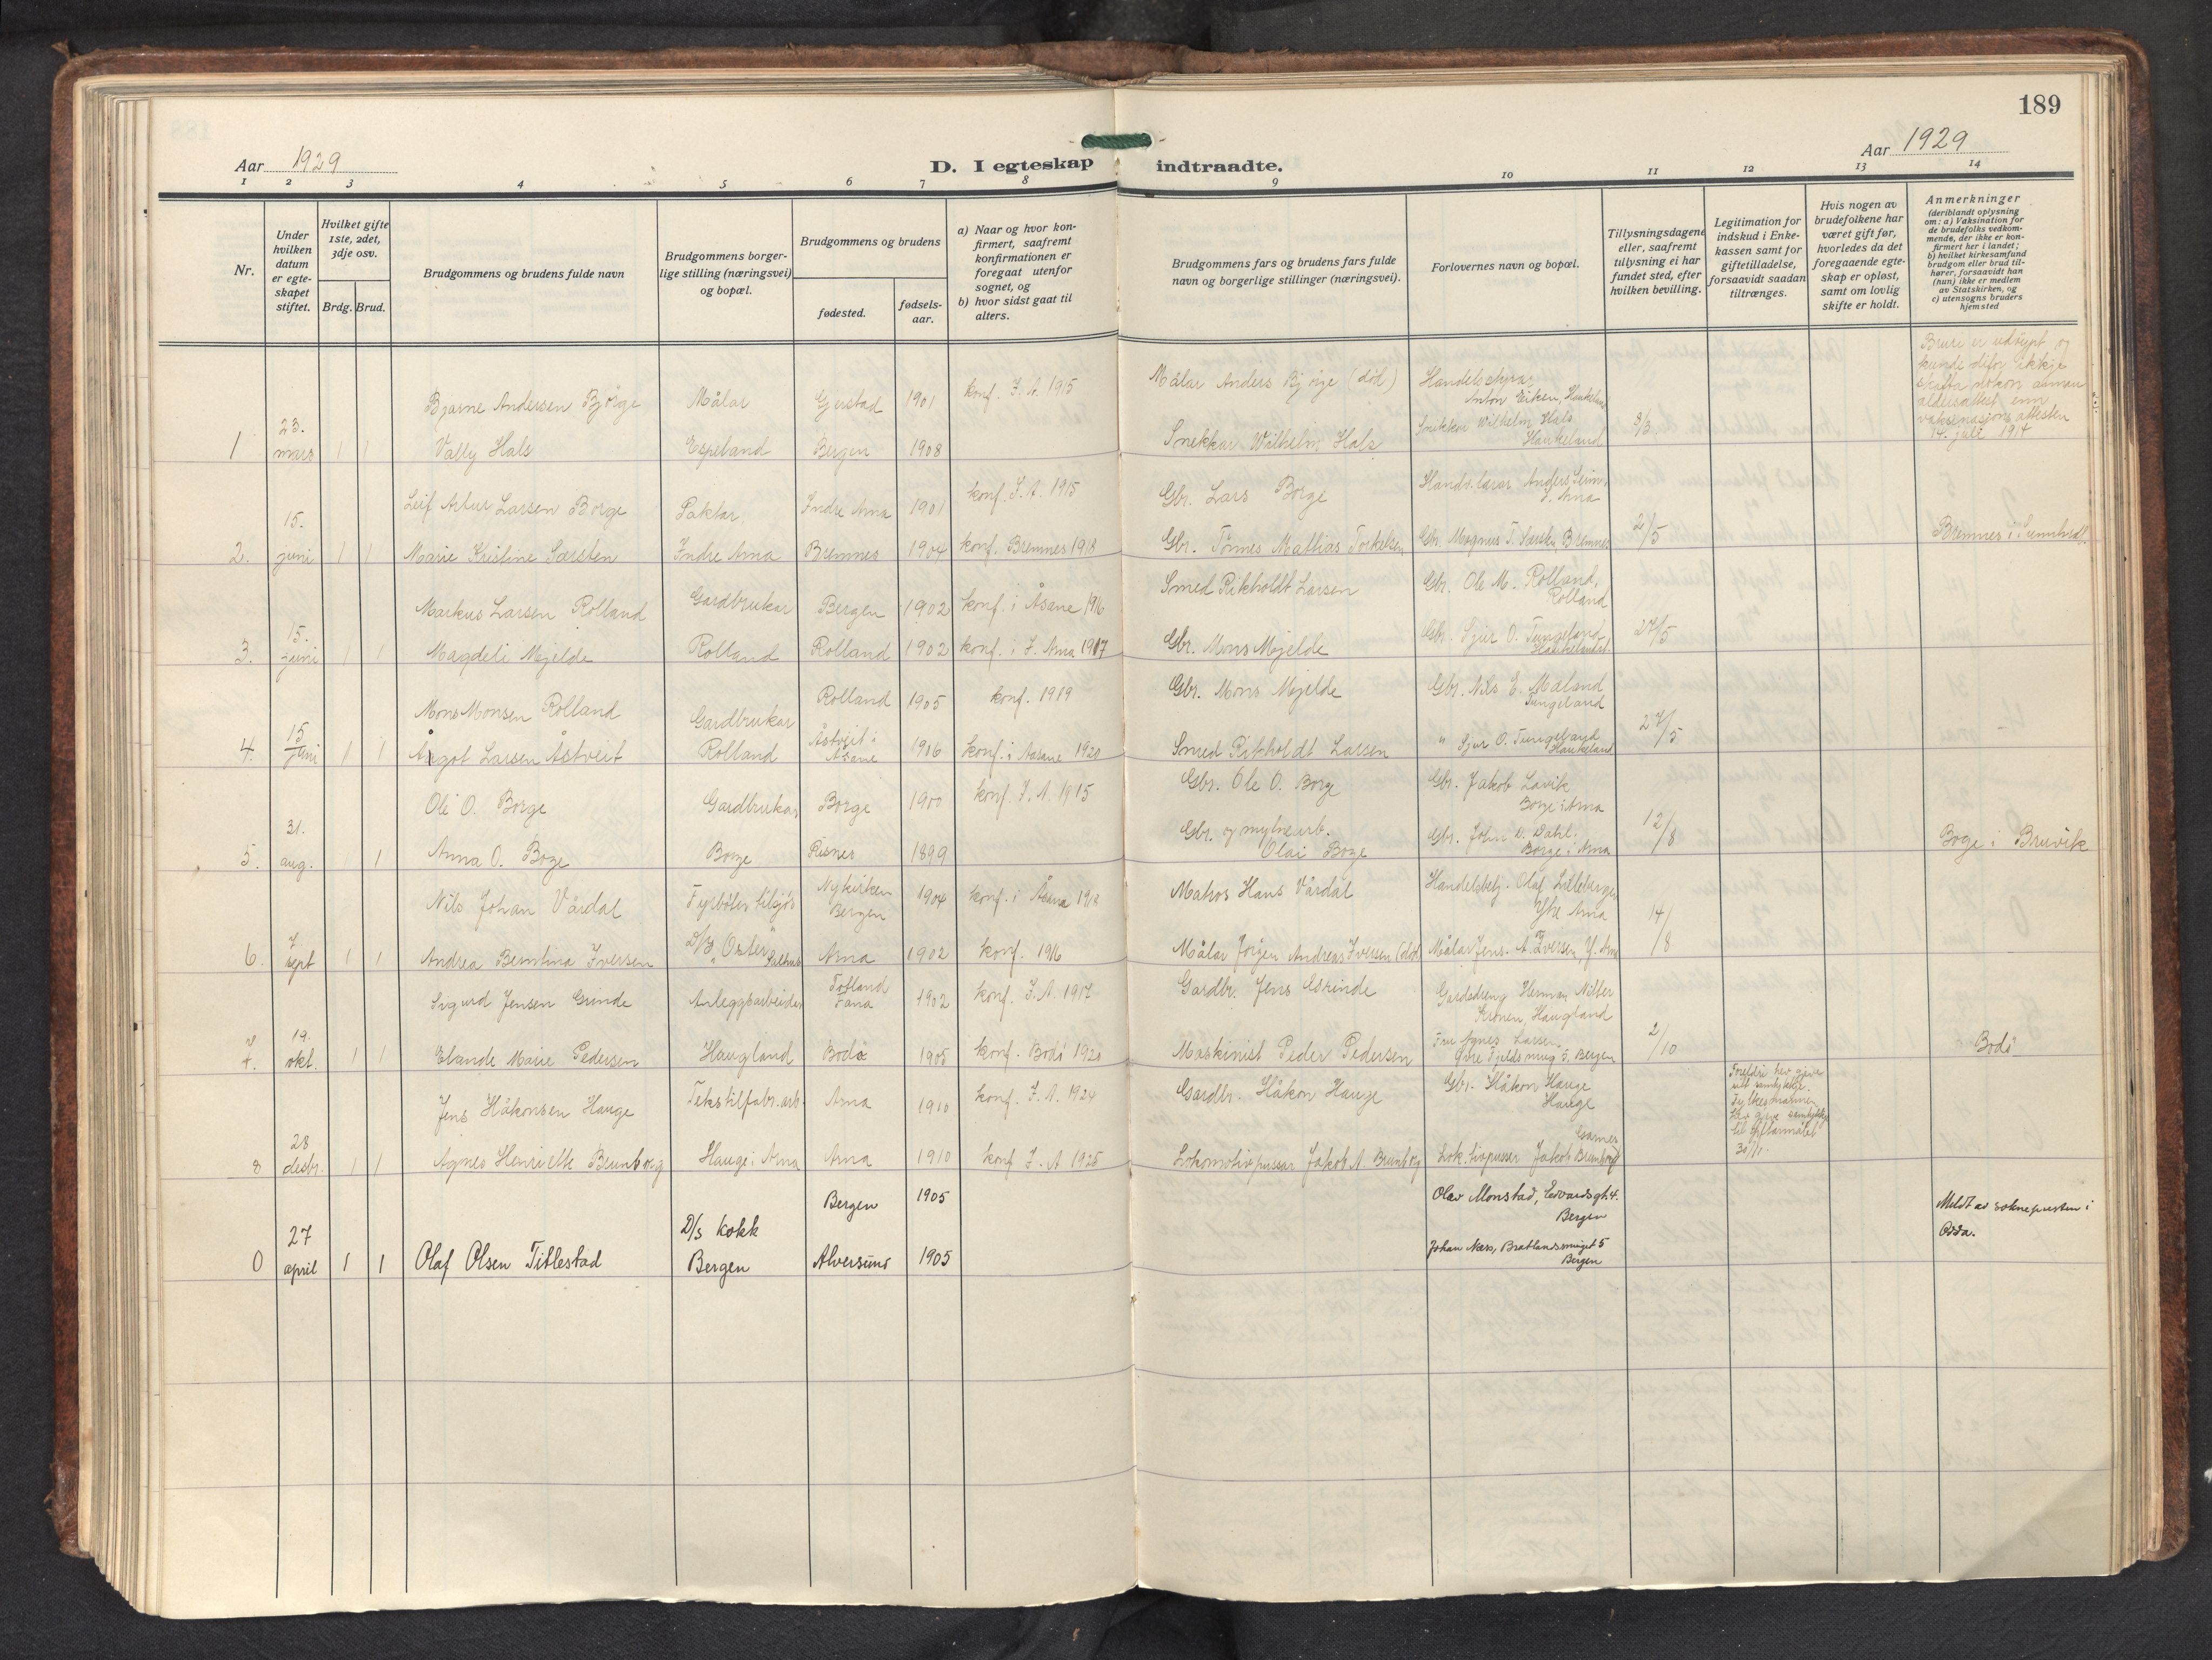 189
Aar 1929
D. I egteskap indtraadte.
Aar 1929
1 2 3 4 5 6 7 8 9 10 11 12 13 14
Nr.
Under hvilken datum er egteskapet stiftet.
Hvilket gifte 1ste, 2det, 3dje osv.
Brdg. Brud.
Brudgommens og brudens fulde navn
Brudgommens borgerlige stilling (næringsvei) og bopæl.
Brudgommens og brudens
fødested.
fødselsaar.
a) Naar og hvor konfirmert, saafremt konfirmationen er foregaat utenfor sognet, og
b) hvor sidst gaat til alters.
Brudgommens fars og brudens fars fulde navn og borgerlige stillinger (næringsvei).
Forlovernes navn og bopæl.
Tillysningsdagene eller, saafremt tillysning ei har fundet sted, efter hvilken bevilling.
Legitimation for indskud i Enkekassen samt for giftetilladelse, forsaavidt saadan tiltrænges.
Hvis nogen av brudefolkene har været gift før, hvorledes da det foregaaende egteskap er opløst, samt om lovlig skifte er holdt.
Anmerkninger
(deriblandt oplysning om: a) Vaksination for de brudefolks vedkommende, der ikke er konfirmert her i landet; b) hvilket kirkesamfund brudgom eller brud tilhører, forsaavidt han (hun) ikke er medlem av Statskirken, og c) utensogns bruders hjemsted
Bjarne Andersen Bjørge Målar Gjerstad 1901 konf. I. A. 1915 Målar Anders Bjørge (död) Handelsstyrar Anton Eiken, Haukeland
1 23. mars 1 1 Vally Hals Espeland Bergen 1908 Snekkar Wilhelm Hals Snikkar Wilhelm Hals Haukeland 8/3
Brure er udöypt og kunde difor ikkje skaffa nokon annen aldersattest enn vaksinasjonsattesten 14. juli 1914
Leif Artur Larsen Borge Paktar Indre Arna 1901 konf. I. A. 1915 Gbr. Lars Borge Handv.lærar Anders Seim I. Arna
2. 15. juni 1 1 Marie Kristine Særsten Indre Arna Bremnes 1904 konf. Bremnes 1918 Gbr. Tönnes Mathias Torkelsen Gbr. Magnus T. Særsten Bremnes 2/5 Bremnes i Sunnhordl.
Markus Larsen Rolland Gardbrukar Bergen 1902 konf. i Åsane 1916 Smed Rikholdt Larsen Gbr. Ole M. Rolland, Rolland
3. 15. juni 1 1 Magdeli Mjelde Rolland Rolland 1902 konf. i I. Arna 1917 Gbr. Mons Mjelde Gbr. Sjur O. Tungeland Haukeland 27/5
Mons Monsen Rolland Gardbrukar Rolland 1905 konf. 1919 Gbr. Mons Mjelde Gbr. Nils E. Maland Tungeland
4. 15 juni 1 1 Ågot Larsen Åstveit Rolland Åstveit i Åsane 1906 konf. i Aasane 1920 Smed Rikholdt Larsen " Sjur O. Tungeland Haukeland 27/5
Ole O. Borge Gardbrukar Borge 1900 konf. I. A. 1915 Gbr. Ole O. Borge Gbr. Jakob Lavik Borge i Arna
5. 31. aug. 1 Anna O. Boge Borge Risnes 1899 Gbr. og myltearb. Olai Boge Gbr. John D. Dahl. Borge i Arna 12/8 Boge i Bruvik
Nils Johan Vårdal Fyrböter tilsjös Nykirken Bergen 1904 konf. i Åsane 1918 Matros Hans Vårdal Handelsbetj. Olaf Lilleberge Ytre Arna
6. 7 sept 1 1 Andrea Berntina Iversen D/S "Oster" Arna 1902 konf. 1916 Målar Jörgen Andreas Iversen (död) Målar Jens. A. Iversen, Y. Arna 14/8
Sigurd Jensen Grinde Anleggsarbeider Totland Fana 1902 konf. I. A. 1917 Gardbr. Jens Grinde Gardsdreng Herman Nitter Kronen, Haugland
7. 19. okt. 1 1 Elande Marie Pedersen Haugland Bodø 1905 konf. Bodö 1920 Maskinist Peder Pedersen Fru Agnes Larsen Övre Fjeldsmug 5. Bergen 2/10 Bodö
Jens Håkonsen Hauge Tekstilfabr.arb. Arna 1910 konf. I. A. 1924 Gardbr. Håkon Hauge Gbr. Håkon Hauge Hauge
8 28 desbr. 1 1 Agnes Henriette Brunborg Hauge i Arna Arna 1910 konf I. A 1925 Lokomotivpussar Jakob A. Brunborg Lok.tivpusser Jakob Brunborg Garnes
Foreldri hev gjeve sitt samtykke. Fylkesmannen hev gjeve samtykke til giftarmålet 30/11.
Bergen 1905 Olav Monstad, Edvardsgt 4. Bergen
0 27 april 1 1 Olaf Olsen Titlestad D/s kokk Bergen Alversund 1905 Johan Næss, Bratlandsmuget 5 Bergen
Meldt av soknepresten i Odda.